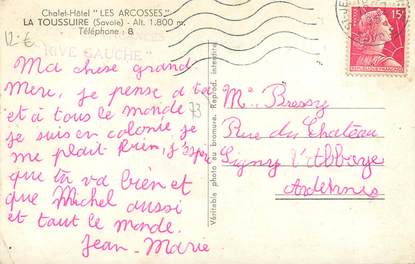 Chalet-Hôtel "LES ARCOSSES"
LA TOUSSUIRE (Savoie) - Alt. 1.800 m.
Téléphone : 8
12 €
RIVE GAUCHE"
Ma chère grand
Mère, je pense a toi
et à tous le monde
je suis en colonie je
me plait bien, j'espère
que ta va bien et
que Michel aussi
et tout le monde.
Jean-Marie
73
Véritable photo au bromure. Reprod. interdite.
15F
M. Bressy
Rue du Chateau
Signy l'Abbaye
Ardennes